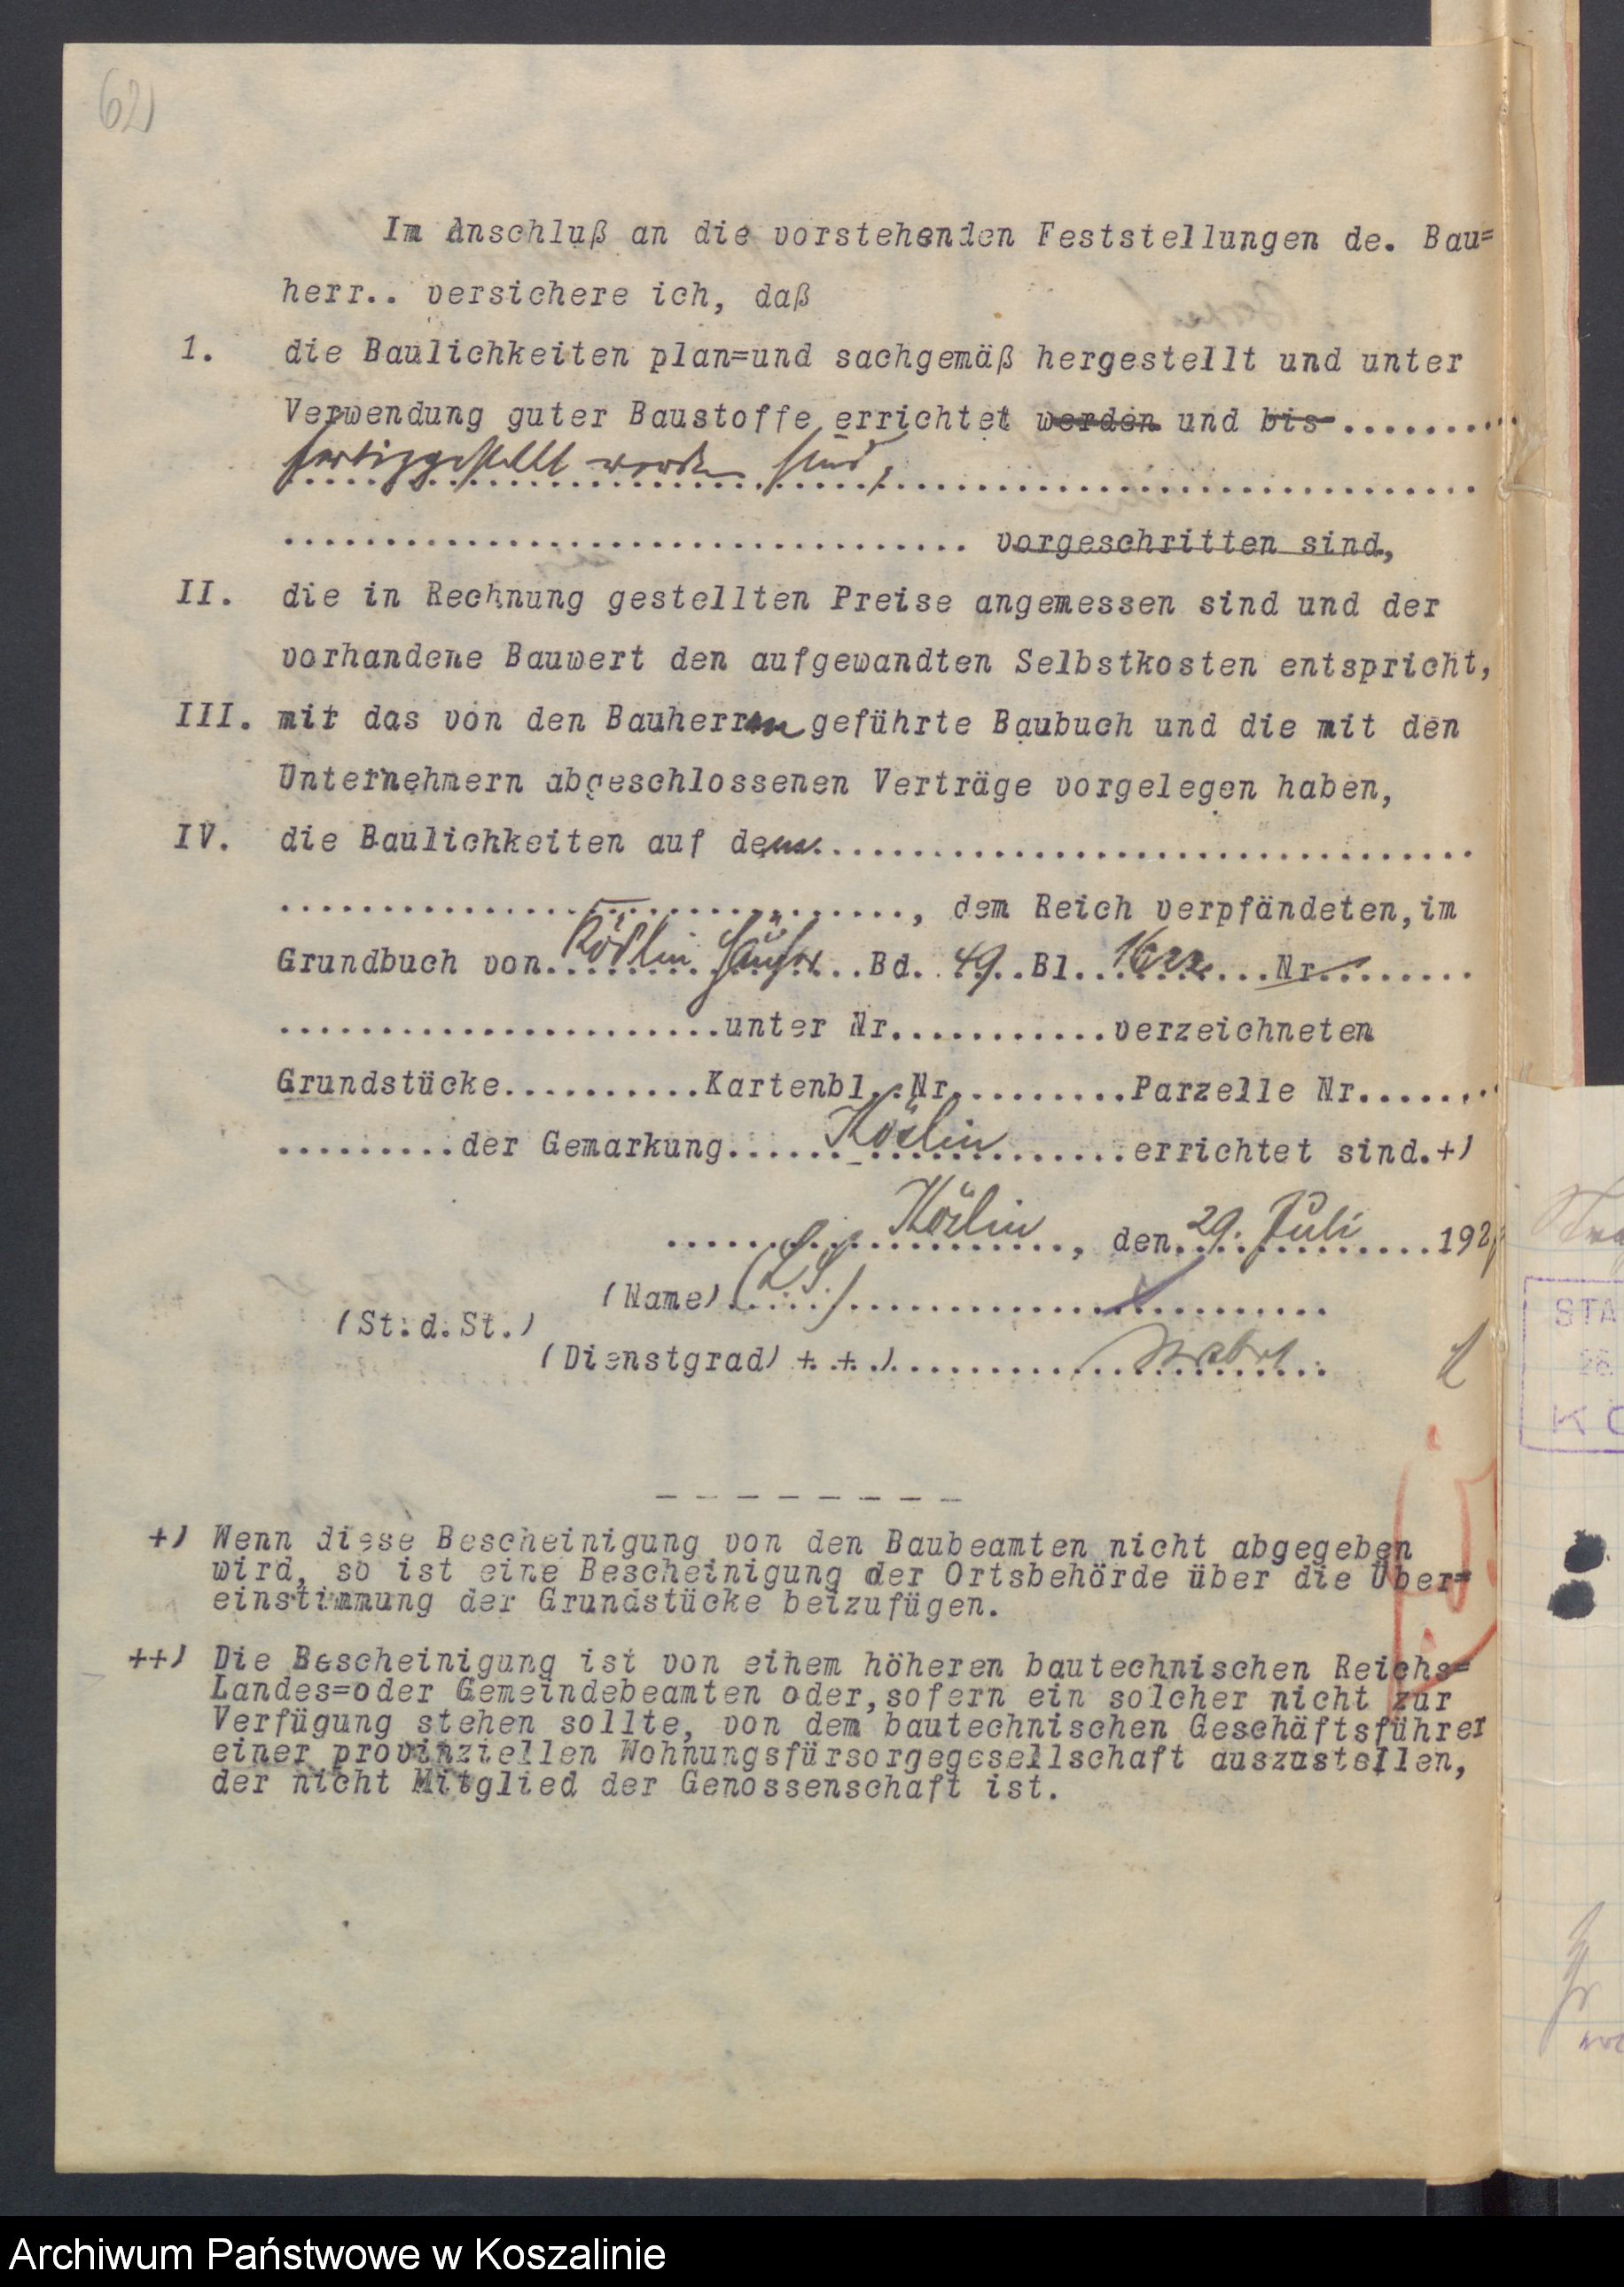 62)
Im Anschluß an die vorstehenden Feststellungen de. Bau=
herr.. versichere ich, daß
1. die Baulichkeiten plan=und sachgemäß hergestellt und unter
Verwendung guter Baustoffe errichtet werden und bis..........
fertiggestellt worden sind,
.................................. vorgeschritten sind,
II. die in Rechnung gestellten Preise angemessen sind und der
vorhandene Bauwert den aufgewandten Selbstkosten entspricht,
III. mir das von den Bauherren geführte Baubuch und die mit den
Unternehmern abgeschlossenen Verträge vorgelegen haben,
IV. die Baulichkeiten auf dem..................................
................................, dem Reich verpfändeten,im
Grundbuch von Köslin Häuser Bd. 49 Bl. 1622 Nr.........
......................unter Nr...........verzeichneten
Grundstücke..........Kartenbl. Nr.........Parzelle Nr.......
.........der Gemarkung Köslin errichtet sind.+)
Köslin, den 29. Juli 192
(Name) (L.S.)
(St.d.St.)
(Dienstgrad) ++)
---------
+) Wenn diese Bescheinigung von den Baubeamten nicht abgegeben
wird, so ist eine Bescheinigung der Ortsbehörde über die Über=
einstimmung der Grundstücke beizufügen.
++) Die Bescheinigung ist von einem höheren bautechnischen Reichs=
Landes=oder Gemeindebeamten oder,sofern ein solcher nicht zur
Verfügung stehen sollte, von dem bautechnischen Geschäftsführer
einer provinziellen Wohnungsfürsorgegesellschaft auszustellen,
der nicht Mitglied der Genossenschaft ist.
STA
26.
KÖ
Archiwum Państwowe w Koszalinie